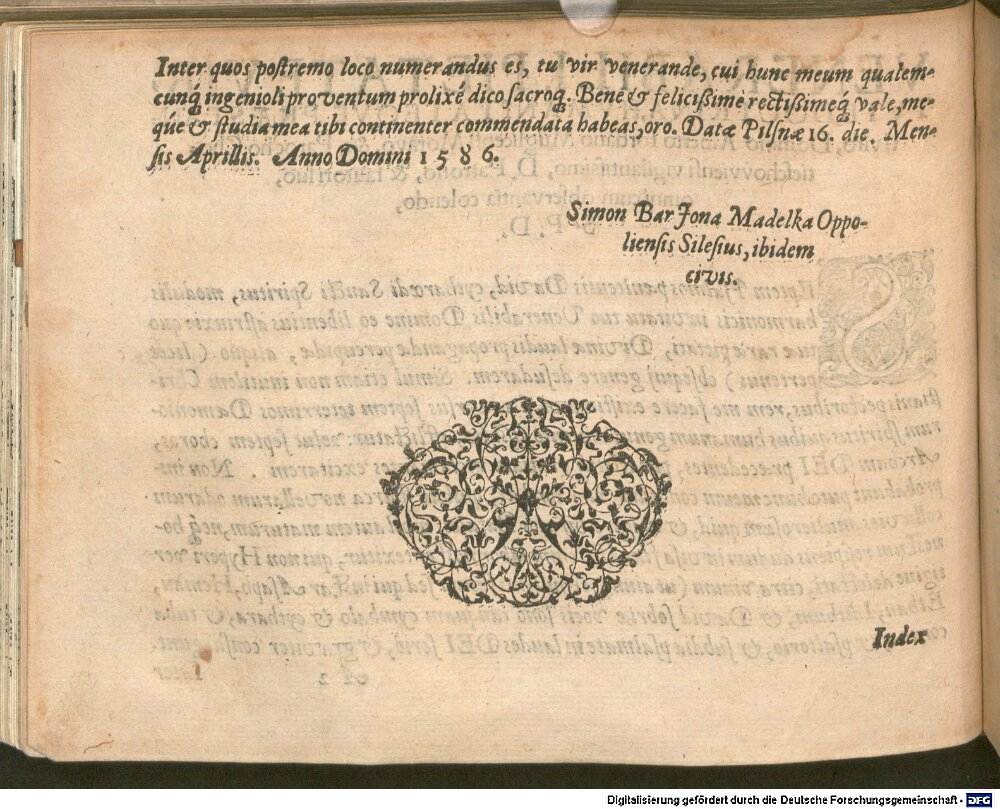 Inter quos postremo loco numerandus es, tu vir venerande, cui hunc meum qualem-
cunq́ꝫ ingenioli proventum prolixé dico sacroqꝫ. Bene & felicißimè rectißimeq́ꝫ vale, me-
q́ue & studia mea tibi continenter commendata habeas, oro. Datæ Pilsnæ 16. die. Men-
sis Aprillis. Anno Domini 1586.
Simon Bar Jona Madelka Oppo-
liensis Silesius, ibidem
civis.
Index
Digitalisierung gefördert durch die Deutsche Forschungsgemeinschaft - DFG